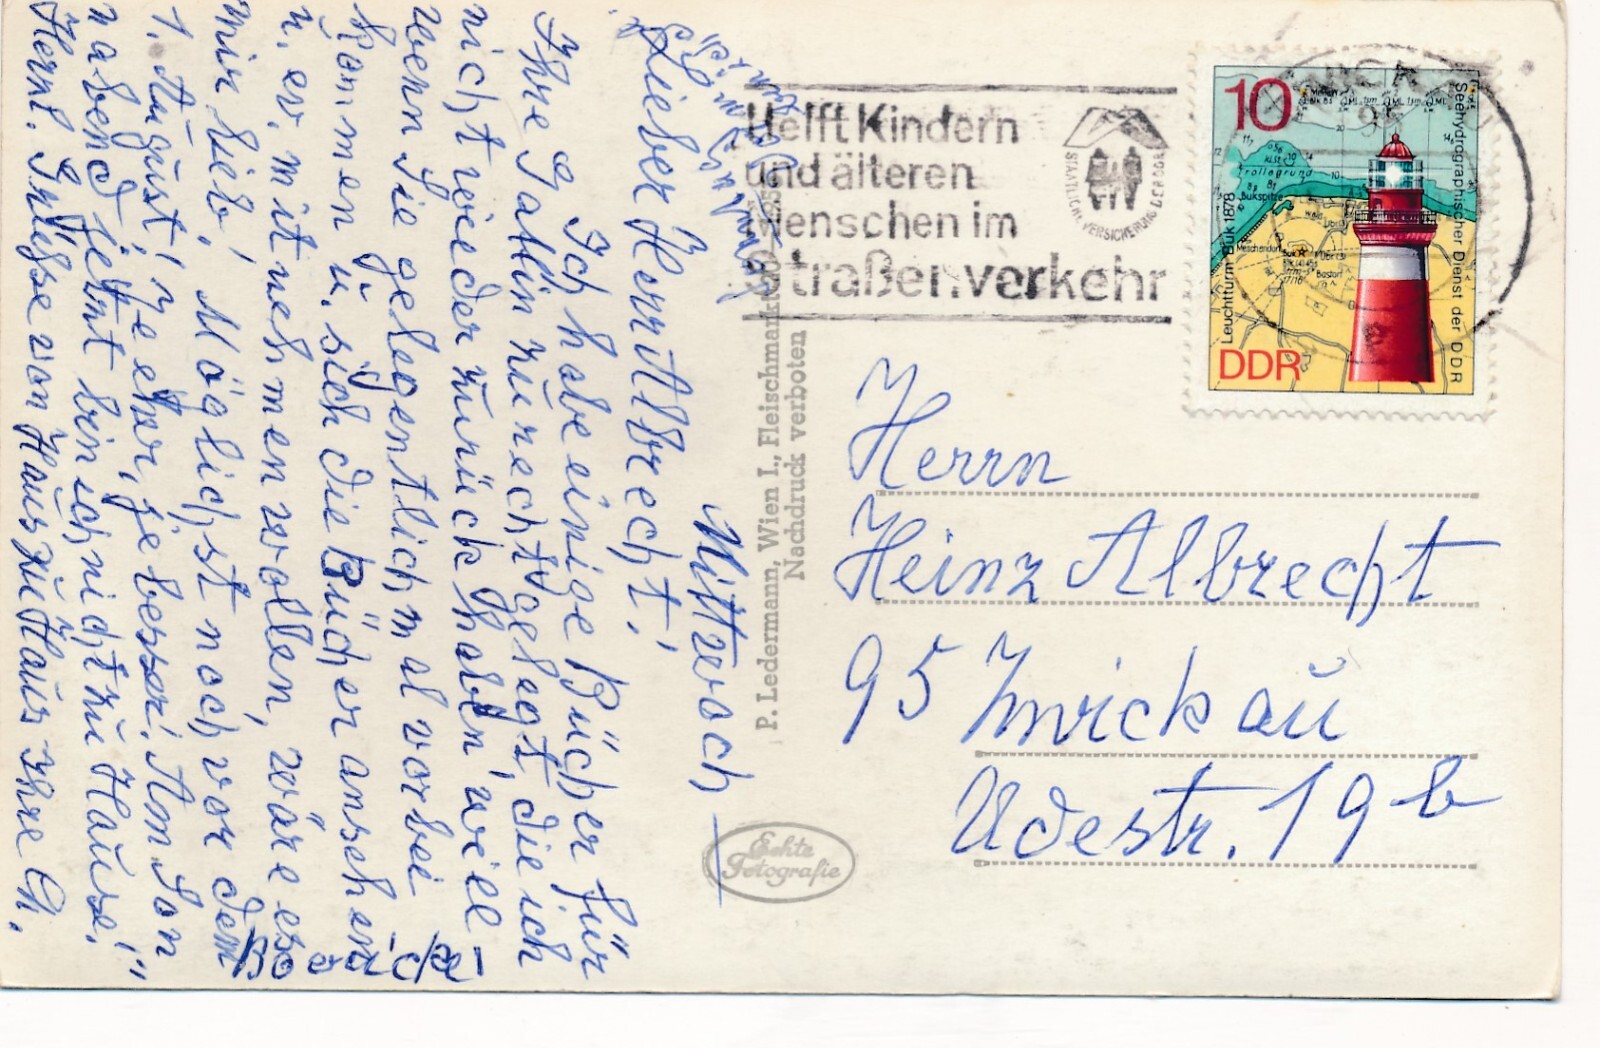 Mittwoch
Lieber Herr Albrecht!
Ich habe einige Bücher für
Ihre Gattin zurechtgelegt die ich
nicht wieder zurück haben will.
Wenn Sie gelegentlich mal vorbei
kommen u. sich die Bücher ansehen
u. ev. mitnehmen wollen, wäre es
mir lieb! Möglichst noch vor dem
1. August! je eher, je besser! Am Son
nabend jetzt bin ich nicht zu Hause!
Herzl. Grüsse von Haus zu Haus Ihre Ch.
Helft Kindern
und älteren
Menschen im
Straßenverkehr
STAATLICHE VERSICHERUNG DER DDR
10
Seehydrographischer Dienst der DDR
Leuchtturm Buk 1878
Trollegrund
Bukspitze
Meschendorf
Bastorf
DDR
P. Ledermann, Wien I., Fleischmarkt
Nachdruck verboten
Echte
Fotografie
Herrn
Heinz Albrecht
95 Zwickau
Udestr. 19 b